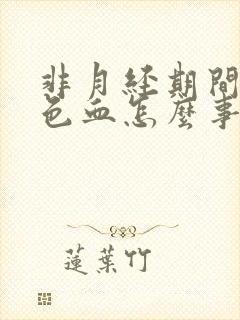 非月経期間
色血怎麼事
蓮葉竹